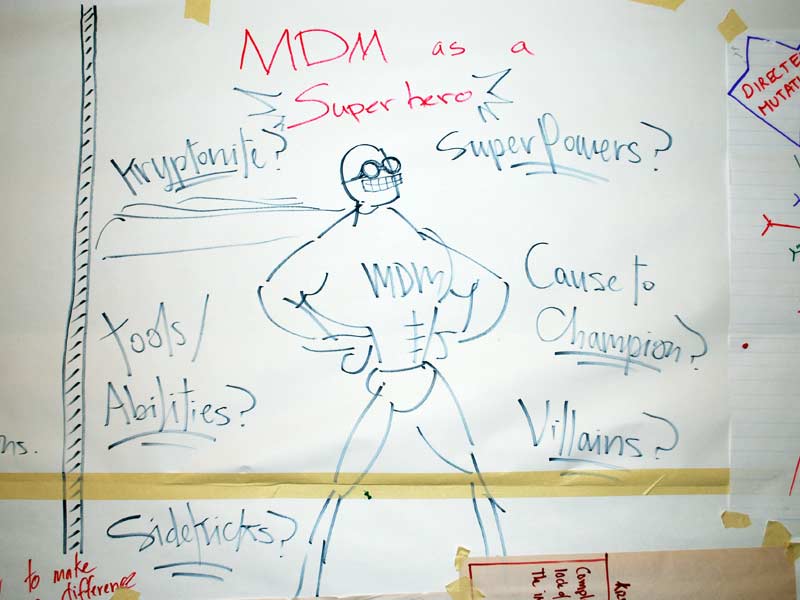 MDM as a
Superhero
Kryptonite?
SuperPowers?
MDM
Cause to
Champion?
Tools/
Abilities?
Villains?
Sidekicks?
ns.
to make
difference
DIRECTE
MUTATI
Compl
lack of
The in